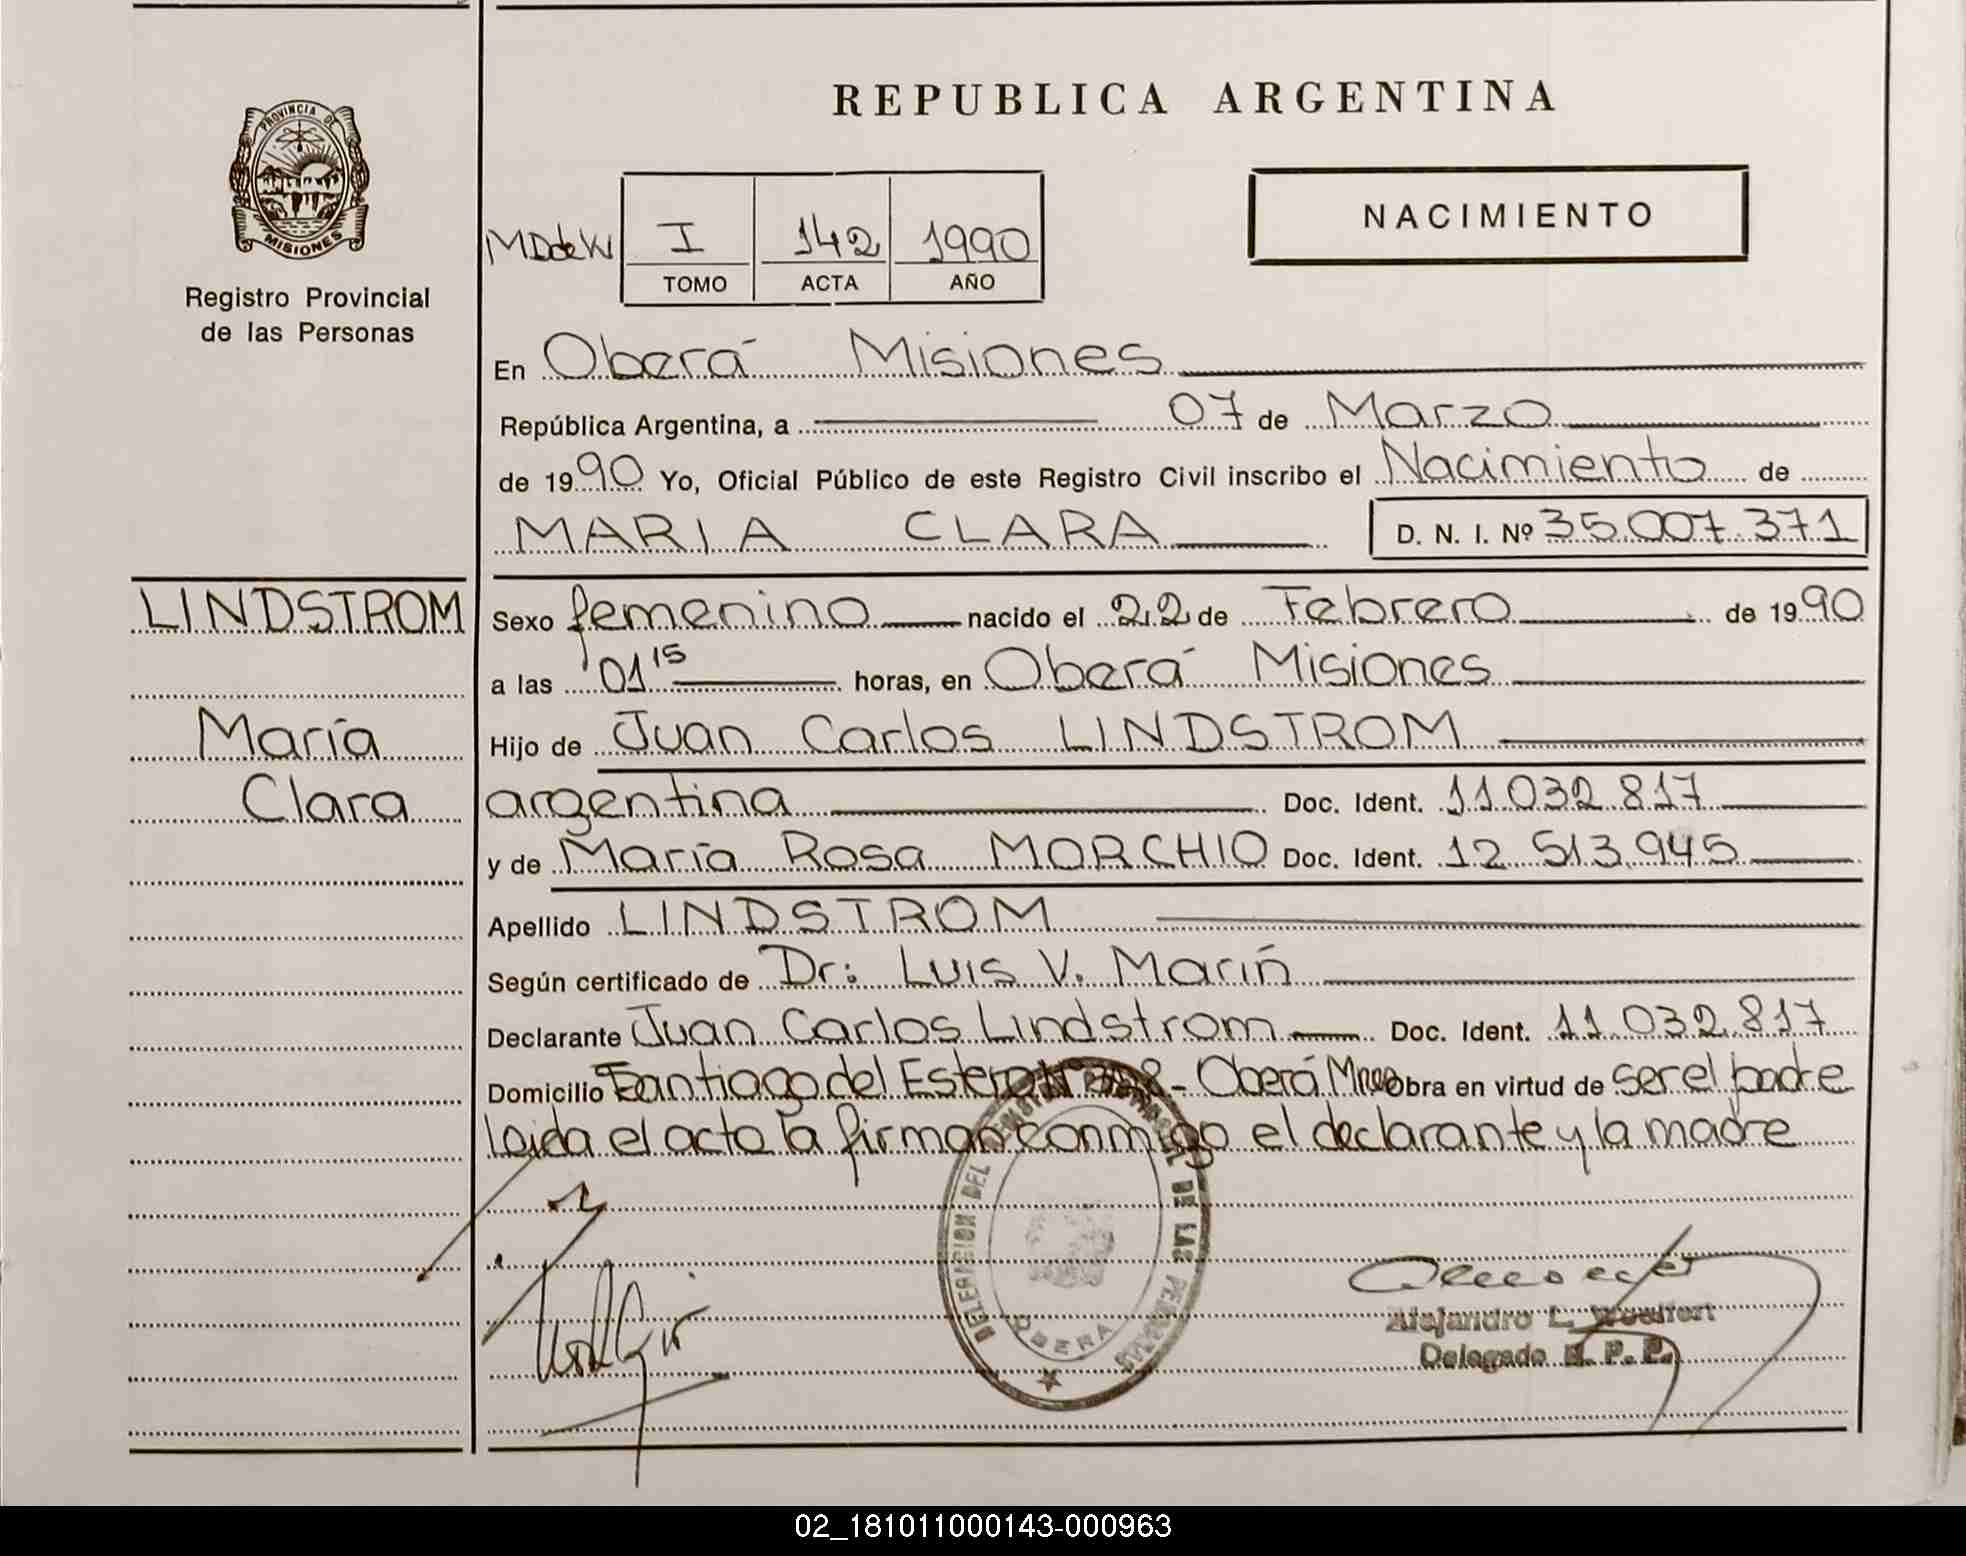 PROVINCIA DE
MISIONES
Registro Provincial
de las Personas
REPUBLICA ARGENTINA
NACIMIENTO
I 142 1990
TOMO ACTA AÑO
En Oberá Misiones
República Argentina, a 07 de Marzo
de 1990 Yo, Oficial Público de este Registro Civil inscribo el Nacimiento de
MARIA CLARA D. N. I. Nº 35.007.371
LINDSTROM
María
Clara
Sexo femenino nacido el 22 de Febrero de 1990
a las 01 15 horas, en Oberá Misiones
Hijo de Juan Carlos LINDSTROM
argentina Doc. Ident. 11.032.817
y de María Rosa MORCHIO Doc. Ident. 12.513.945
Apellido LINDSTROM
Según certificado de Dr: Luis V. Marin
Declarante Juan Carlos Lindstrom Doc. Ident. 11.032.817
Domicilio Santiago del Estero Oberá Obra en virtud de ser el padre
Leida el acta la firman conmigo el declarante y la madre
DELEGACION DEL DE LAS
OBERA
Alejandro L.
Delegado R. P. P.
02_181011000143-000963